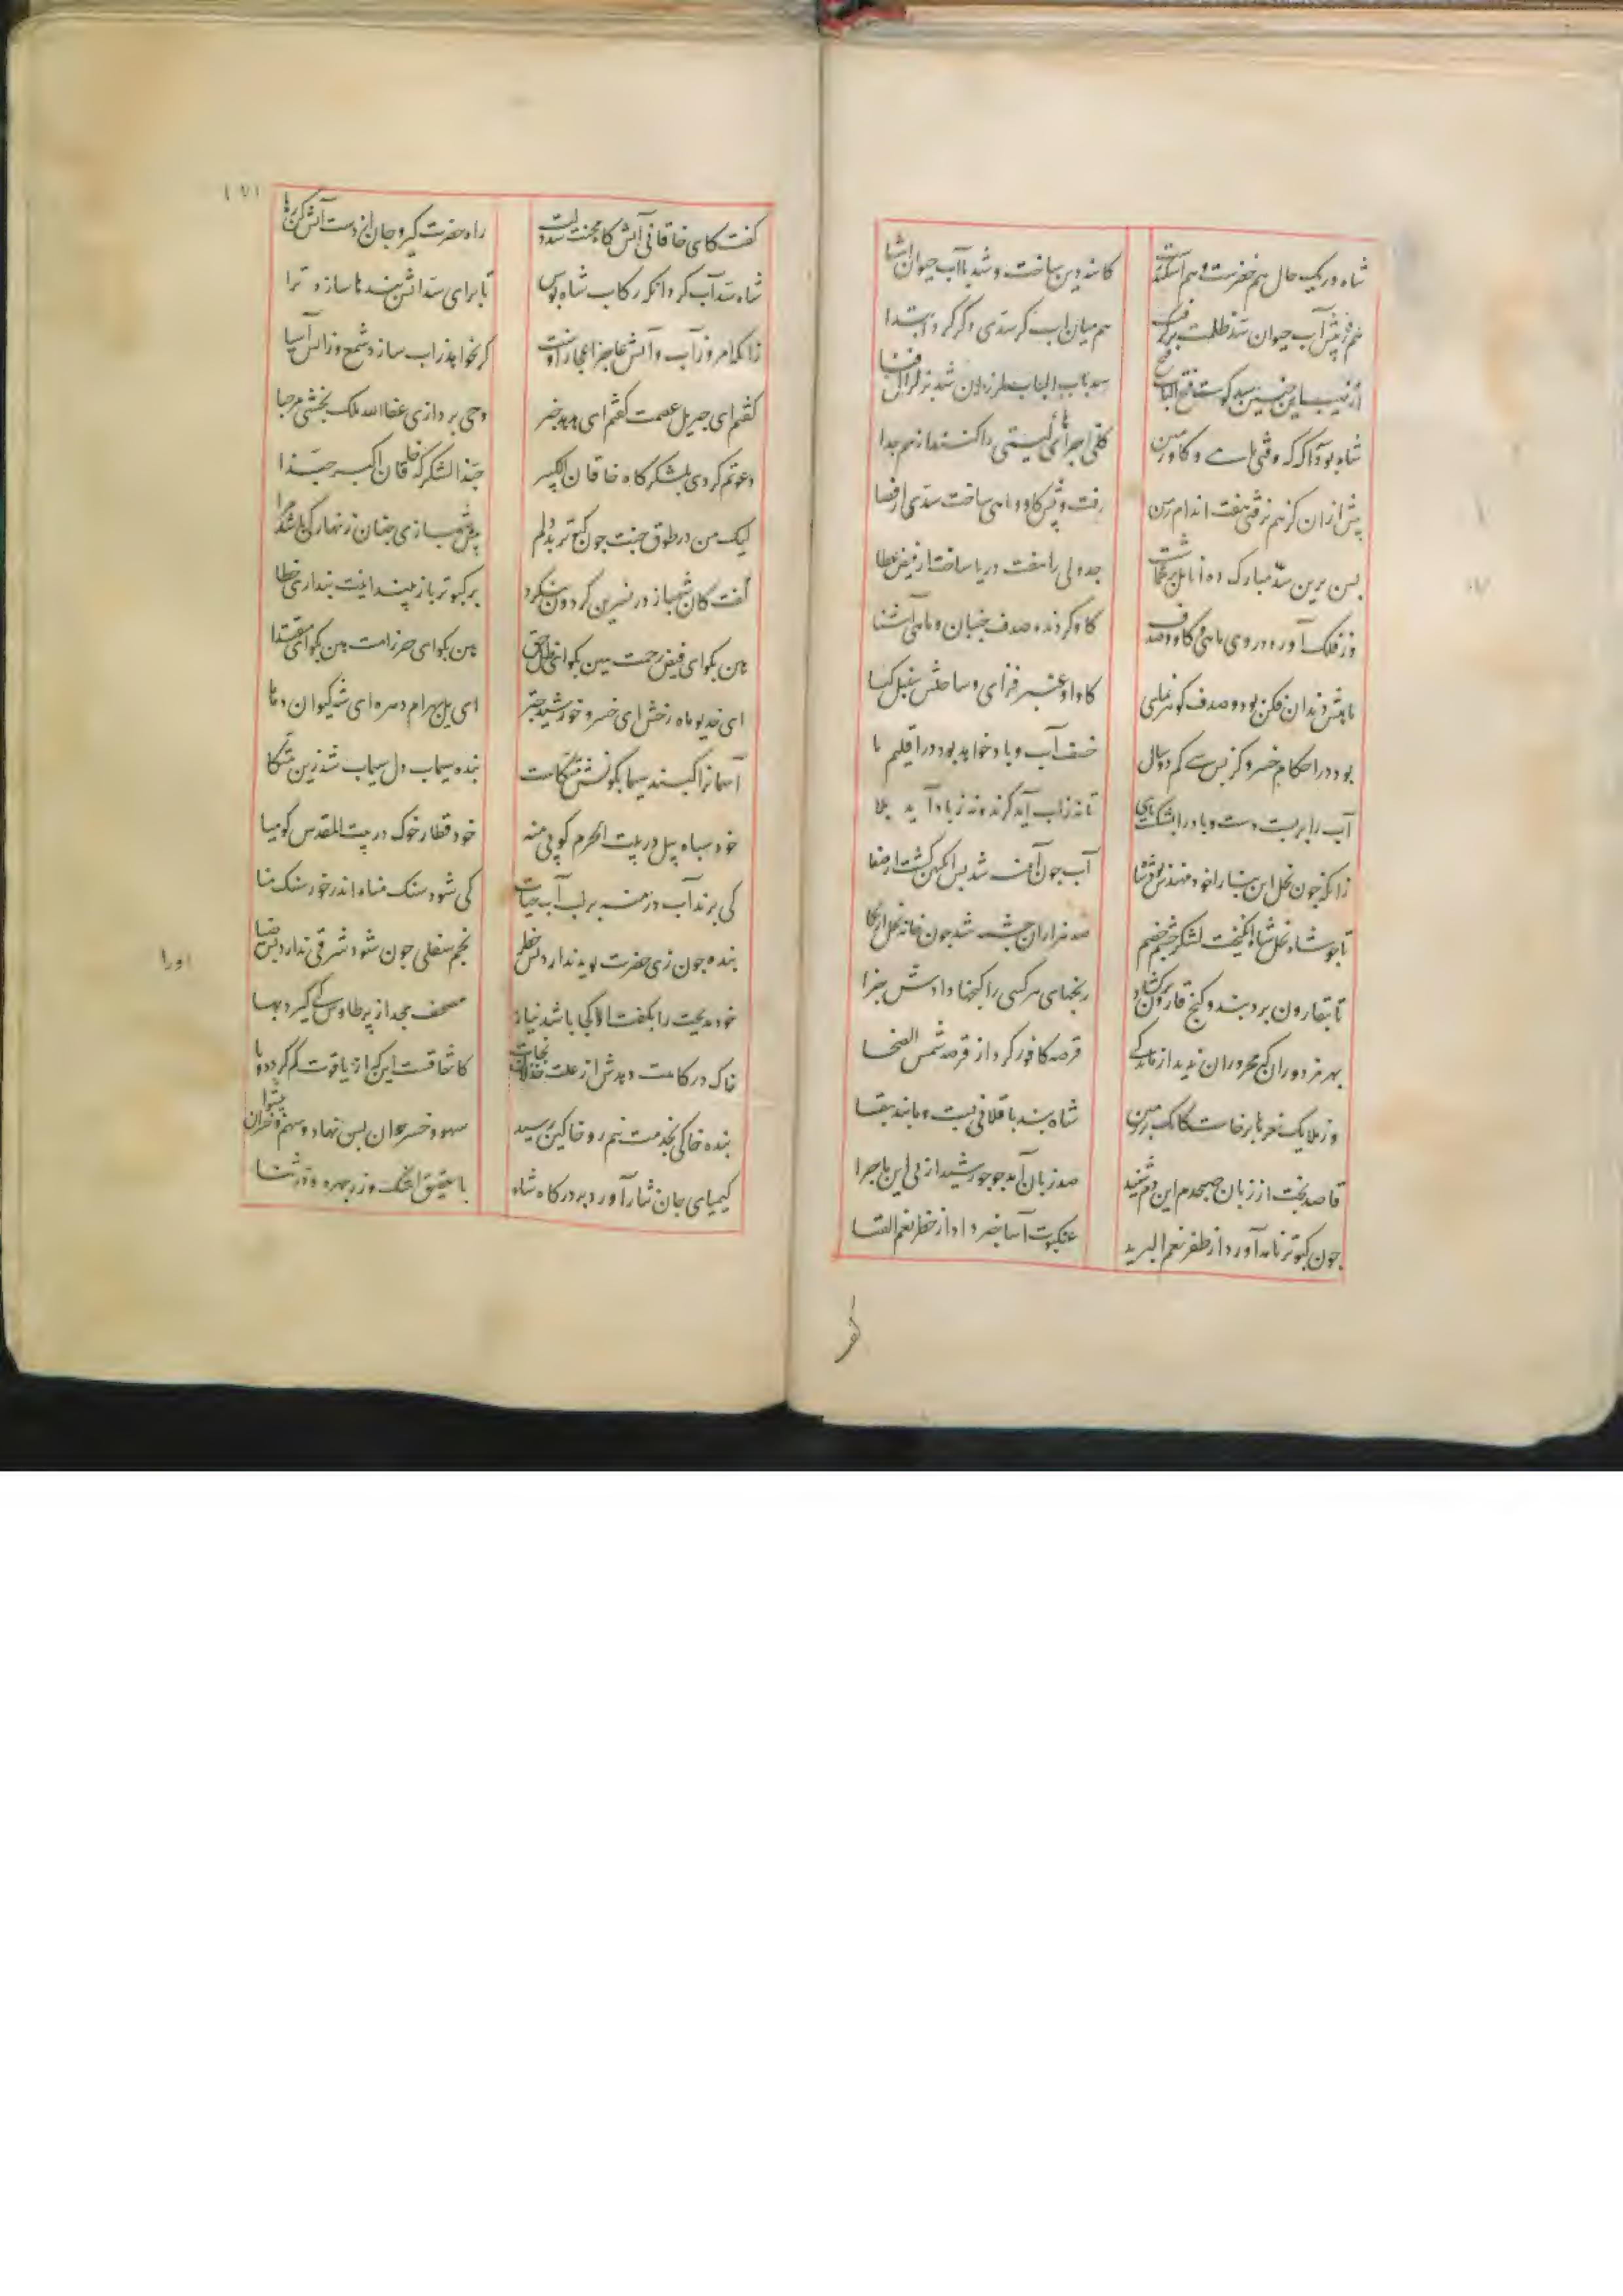 شاه در یک حال هم خضرست و هم اسکندرست
کاینه دین ساخت و شد با آب حیوان آشنا
هم ز پیش آب حیوان سد ظلمت برگرفت
هم میان آب کر سدی دگر کرد ابتدا
از نهیب این چنین سد کوست فتح الباب فتح
سد باب الباب لرزان شد بزلزال فنا
شاه بود آگه که وقتی ماهی و گاو زمین
کلی اجزای گیتی را کنند از هم جدا
پیش از آن کز هم برفتی هفت اندام زمین
رفت و پیش گاو و ماهی ساخت سدی از قضا
پس برین سد مبارک ده انامل برگماشت
جدولی را هفت دریا ساخت از فیض عطا
وز فلک آورده در وی ماهی و گاو و صدف
گاو گردنده صدف جنبان و ماهی آشنا
ماهیش دندان فکن بود و صدف گوهر نمای
گاو او عنبر فزای و ساحتش سنبل گیا
بود در احکام خسرو کز پس سی کم دو سال
خسف آب و باد خواهد بود در اقلیم ما
آب را بربست دست و باد را بشکست پای
تا نه زآب آید گزند و نه ز باد آید بلا
زانکه چون نحل این بنا را خود مهندس بود شاه
آب چون آینه شد پس انگبین گشت از صفا
تا چو شاه نحل شاه انگیخت لشکر چشم خصم
صد هزاران چشمه شد چون خانه نحل از بکا
تا بقارون برد بند و گنج قارون برگشاد
رنجهای هر کسی را گنجها دادش جزا
بهر مزدوران که محروران بدند از ماندگی
قرصه کافور کرد از قرصه شمس الضحی
وز ملایک نعره برخاست کانک بر زمین
شاه بند باقلانی بست و ماند بقا
قاصد بخت از زبان صبحدم این دم شنید
صد زبان آمد چو خورشید از پی این ماجرا
چون کبوتر نامه آورد از ظفر نعم البرید
عنکبوت آسا خبر داد از خطر نعم الفتا
گفت کای خاقانی آتش گاه محنت شد دلت
راه حضرت گیر و جان از دست آتش کن رها
شاه سد آب کرد اینک رکاب شاه بوس
تا برای سد آتش بندها سازد ترا
زانکه امروز آب و آتش عاجز اعجاز اوست
گر بخواهد زآب سازد شمع و زآتش آسیا
گفتم ای جبریل عصمت گفتم ای هدهد خبر
وحی پردازی عفاالله ملک بخشی مرحبا
دعوتم کردی بلشکرگاه خاقان الکبیر
حبذا لشکرگه خاقان اکبر حبذا
لیک من در طوق خدمت چون کبوتر بددلم
پیش شهبازی چنان زنهار کی باشد مرا
گفت کان شهباز در نسرین گردون ننگرد
بر کبوتر باز بیند اینت پنداری خطا
هین بگو ای فیض رحمت هین بگو ای ظل حق
هین بگو ای حرز امت هین بگو ای مقتدا
ای خدیو ماه رخش ای خسرو خورشید چتر
ای یل بهرام دهره ای شه کیوان دها
آسمانرا کسند سیمابگونش متکاست
بنده سیماب دل سیماب شد زین متکا
خود سپاه پیل در بیت الحرم گو پی منه
خود قطار خوک در بیت المقدس گو میا
کی برند آب درمنه بر لب آب حیات
کی شود سنک منات اندر خور سنک منا
بنده چون زی حضرت پوید ندارد بس خطر
نجم سفلی چون شود شرقی ندارد بس ضیا
خود مدیحت را بگفت او کجا باشد نیاز
مصحف مجد از پر طاوس کی گیرد بها
خاک درگاهت دهدش از علت خذلان نجات
کاتفاقست این که از یاقوت کم گردد وبا
بنده خاکی بخدمت نیم رو خاکین رسید
سهو و خسران پس نهاد و سهم و خذلان پیشوا
کیمیای جان نثار آورد بر درگاه شاه
با عقیق اشک و زر چهره و در ثنا
اورا